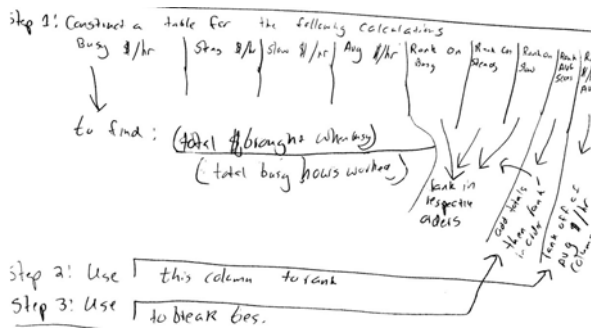 Step 1: Construct a table for the following calculations
Busy $/hr | Stdy $/hr | Slow $/hr | Avg $/hr | Rank on Busy | Rank on Steady | Rank on Slow | Rank Avg
to find: (total $ brought when busy)
(total busy hours worked)
Rank in
respective
orders
add totals
then rank
in order
rank off of
Avg $/hr
column
Step 2: Use this column to rank
Step 3: Use to break ties.